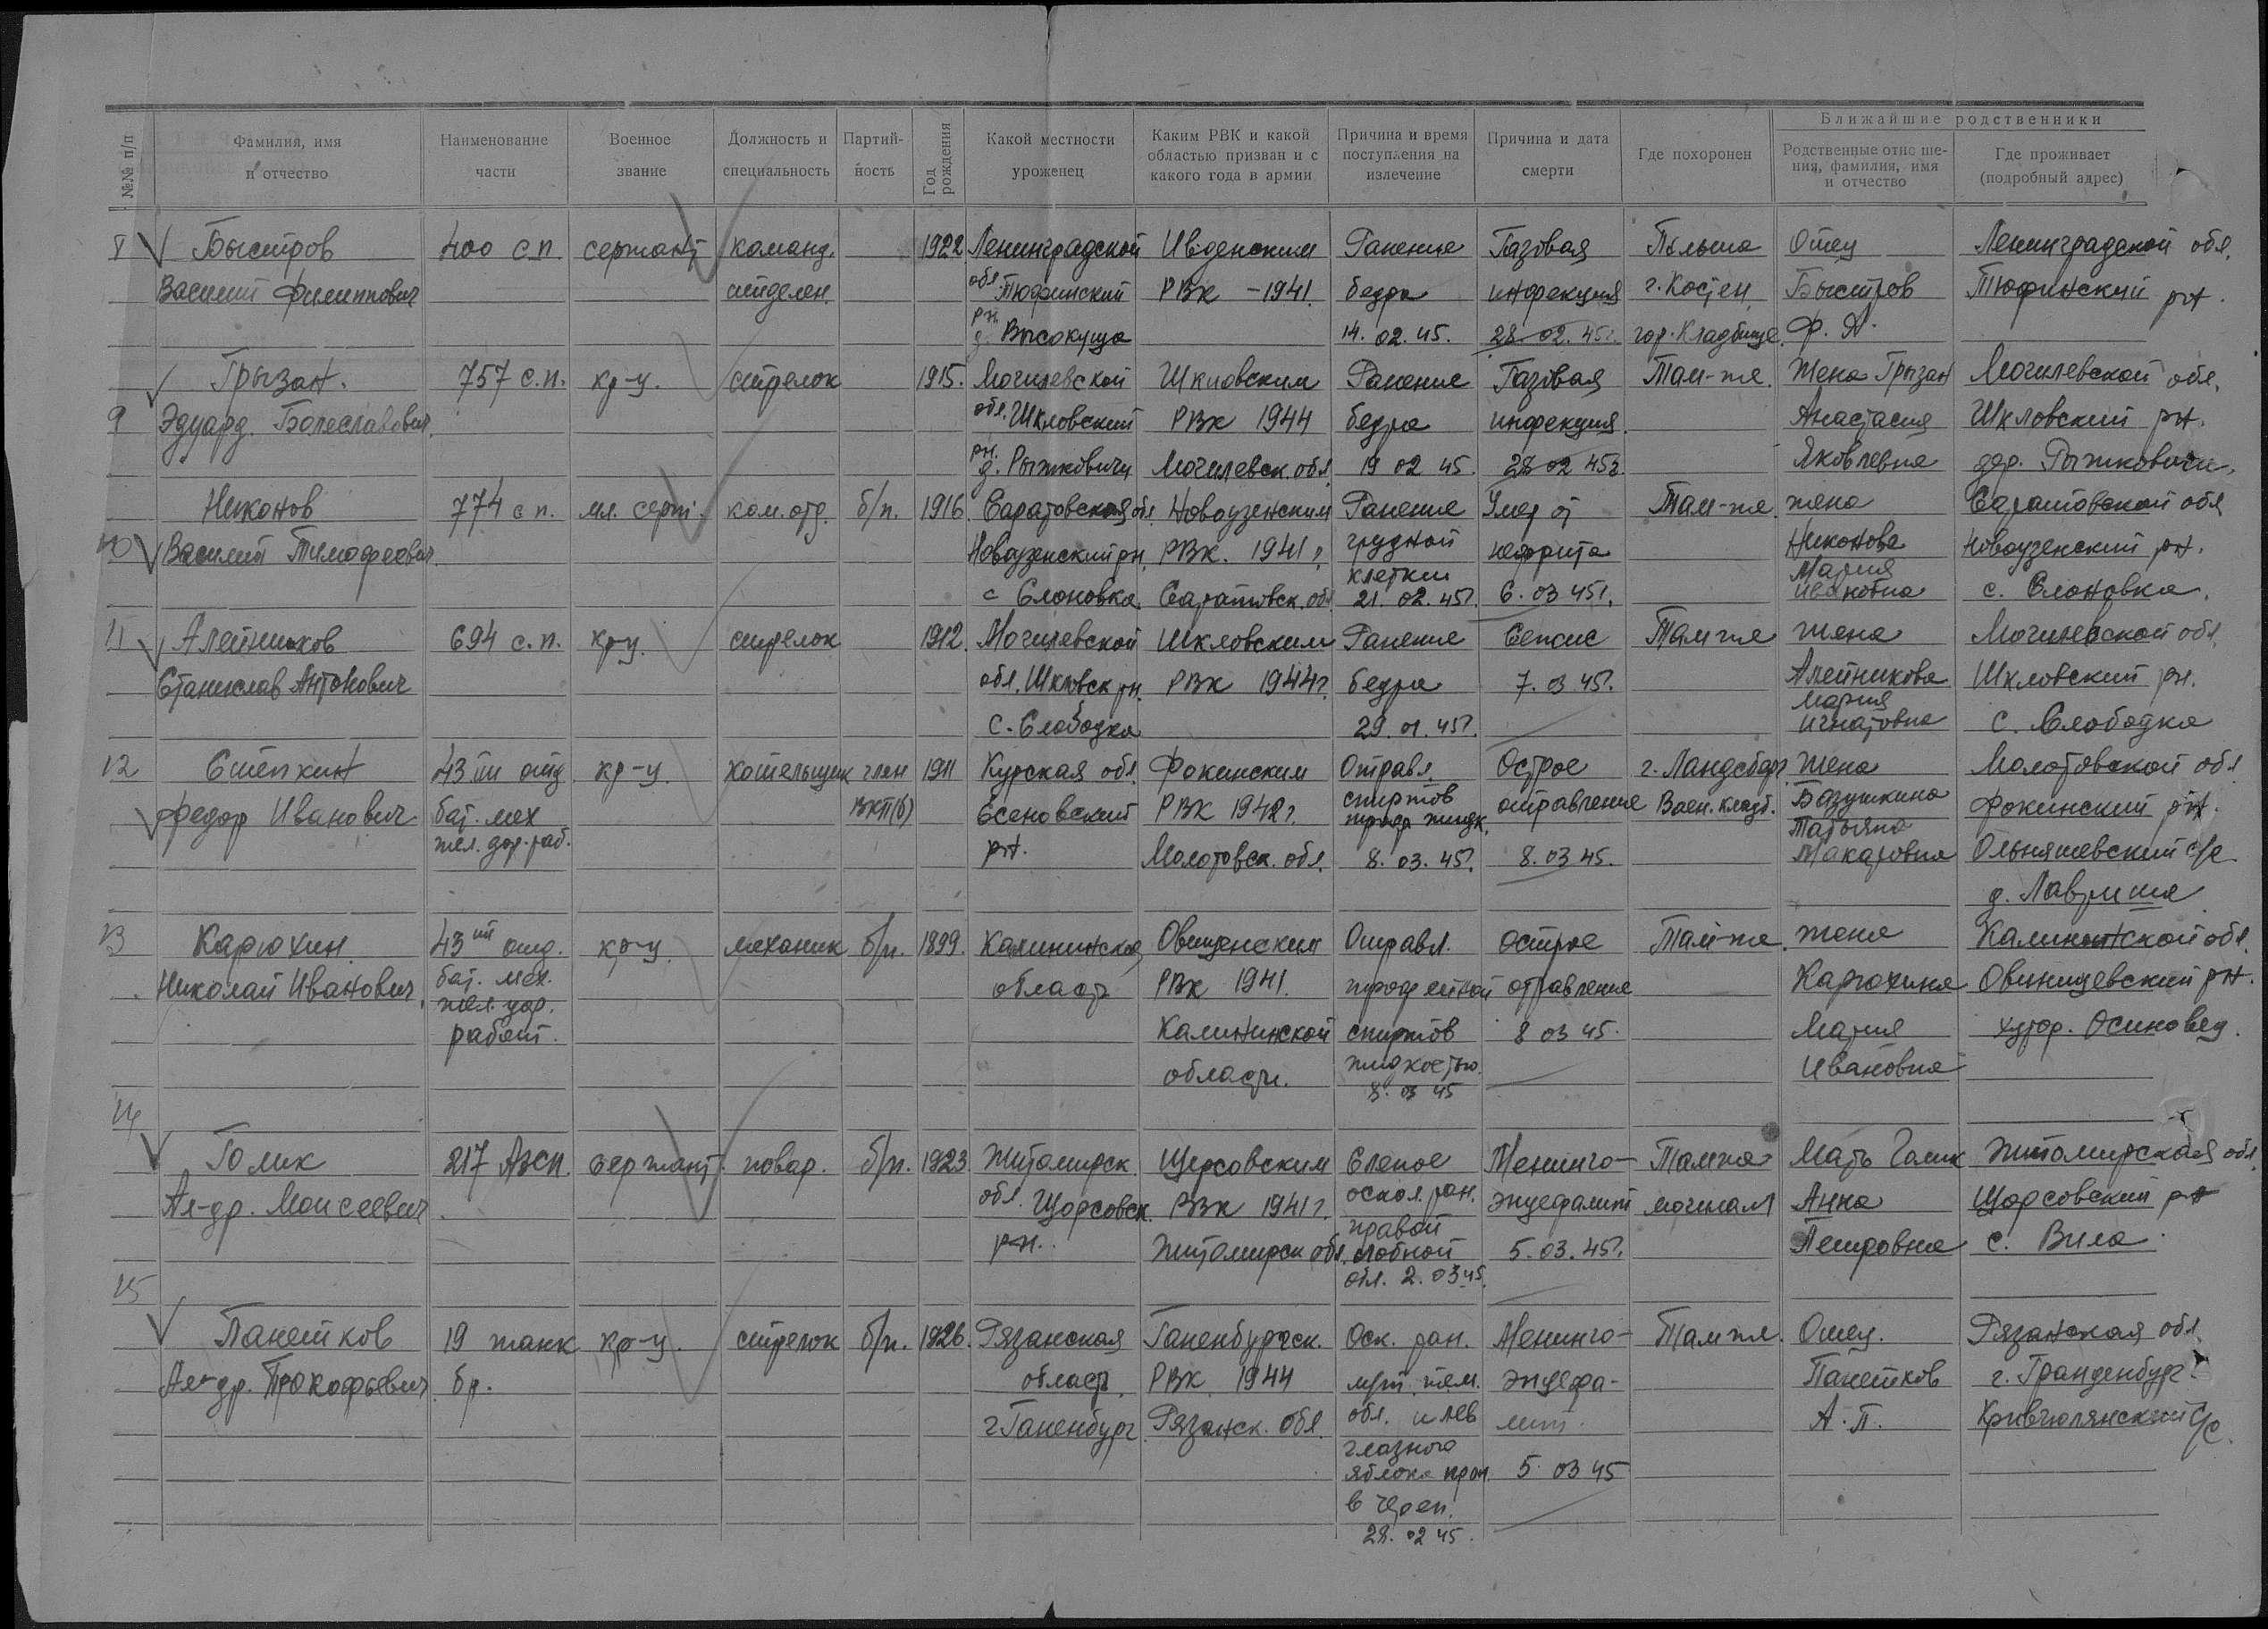 №№ п/п
Фамилия, имя и отчество
Наименование части
Военное звание
Должность и специальность
Партий- ность
Год рождения
Какой местности уроженец
Каким РВК и какой областью призван и с какого года в армии
Причина и время поступления на излечение
Причина и дата смерти
Где похоронен
Ближайшие родственники
Родственные отно ше- ния, фамилия, имя и отчество
Где проживает (подробный адрес)
8 Быстров 400 с.п. сержант команд. 1922 Ленинградской Ивденским Ранение Газовая Польша Отец Ленинградской обл.
Василий Филиппович отделен. обл. Тюфинский РВК - 1941. бедра инфекция г. Костен Быстров Тюфинский рн.
рн. д. Высокуща 14. 02. 45. 28 02. 45г. гор. Кладбище. Ф. А.
Грызан. 757 с.п. кр-ц. стрелок 1915. Могилевской Шкловским Ранение Газовая Там-же. Жена Грызан Могилевской обл.
9 Эдуард. Болеславович обл. Шкловский РВК 1944 бедра инфекция. Анастасия Шкловский рн.
рн. д. Рыжковичи Могилевск. обл. 19 02 45. 28 02 45г. Яковлевна дер. Рыжковичи.
Никонов 774 с п. мл. серж. ком. отд. б/п. 1916. Саратовская обл. Новоузенским Ранение Умер от Там-же. жена Саратовской обл
10 Василий Тимофеевич Новоузенский рн. РВК. 1941 г. грудной нефрита Никонова Новоузенский рн.
с Слоновка. Саратовск. обл клетки 21. 02. 45г. 6. 03 45г. Мария Ивановна с. Слоновка.
11 Алейников 694 с.п. кр-ц. стрелок 1912. Могилевской Шкловским Ранение Сепсис Там же жена Могилевской обл.
Станислав Антонович обл. Шкловск рн. РВК 1944г. бедра 7. 03 45г. Алейникова Шкловский рн.
с. Слободка 29. 01. 45г. Мария Игнатовна с. Слободка
12 Стёпкин 43 ий отд кр-ц. котельщик член 1911 Курская обл. Фокинским Отравл. Острое г. Ландсберг. Жена Молотовской обл
Федор Иванович бат. мех ВКП(б) РВК 1942г. спиртов отравление Воен. кладб. Фокинский рн.
жел. дор. раб. рн. Молотовск. обл. жидк. 8. 03. 45г. 8. 03 45. Татьяна Макаровна с/с
13 Карюхин. 43 ий отд. кр-ц. механик б/п. 1899. Калининская Отравл. острое Там-же. жена Калининской обл.
Николай Иванович. бат. мех. область РВК 1941. отравление Карюхина Овинищевский рн.
жел. дор. работ. Калининской спиртов 8 03 45. Мария хутор. Осиновец.
области. жидкостью. 8. 03 45 Ивановна
14
Голик 217 сержант повар. б/п. 1923 Житомирск. Щорсовским Слепое Менинго- Там же Мать Голик Житомирская обл.
Ал-др. Моисеевич обл. Щорсовск. РВК 1941г. оскол. ран. энцефалит Анна Щорсовский рн
рн. Житомирск обл. правой лобной обл. 2. 03 45. 5. 03. 45г. Петровна с. Вила.
15
Панетков 19 танк кр-ц. стрелок б/п. 1926. Рязанская Раненбургск. Оск. ран. Менинго- Там же. Отец. Рязанская обл
Ал-др. Прокофьевич бр. область. РВК 1944 энцефа- Панетков
г Раненбург Рязанск. Обл. обл. и лев лит. А. П. с/с.
глазного яблока прон. 5. 03 45
в череп.
28. 02 45.